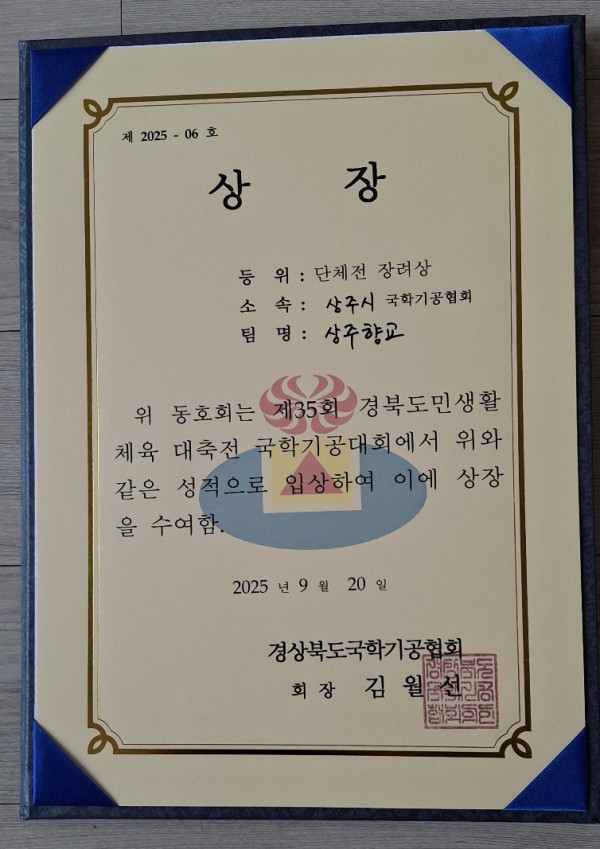 제 2025 - 06 호
상 장
등 위 : 단체전 장려상
소 속 : 상주시 국학기공협회
팀 명 : 상주향교
위 동호회는 제35회 경북도민생활
체육 대축전 국학기공대회에서 위와
같은 성적으로 입상하여 이에 상장
을 수여함.
2025 년 9 월 20 일
경상북도국학기공협회
회 장 김 월 선